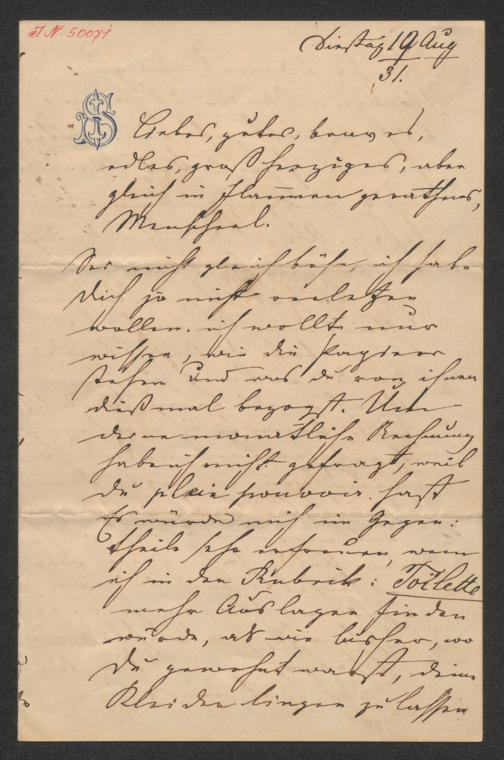 I.N. 50071
Dienstag 19 Aug
31.
JS
Liebes, gutes, braves,
edles, großherziges, aber
gleich in Flammen gerathenes,
Menscherl.
Sei nicht gleich böse, ich habe
Dich ja nicht verletzen
wollen. ich wollte nur
wissen, wie die Papiere
stehen und was du von ihnen
dießmal bezogst. Um
deine monatliche Rechnung
habe ich nicht gefragt, weil
du plein pouvoir hast
Es würde mich im Gegen:
theile sehr erfreuen, wenn
ich in der Rubrik: Toilette
mehr Auslagen finden
würde, als wie bisher, wo
Du gewohnt warst, deine
Kleider liegen zu lassen